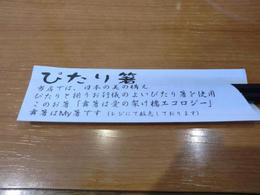 ぴたり箸
当店では、日本の美の構え
ぴたりと揃うお行儀のよいぴたり箸を使用
このお箸「露箸は愛の架け橋エコロジー」
露箸はMy箸です（レジにて販売しております）